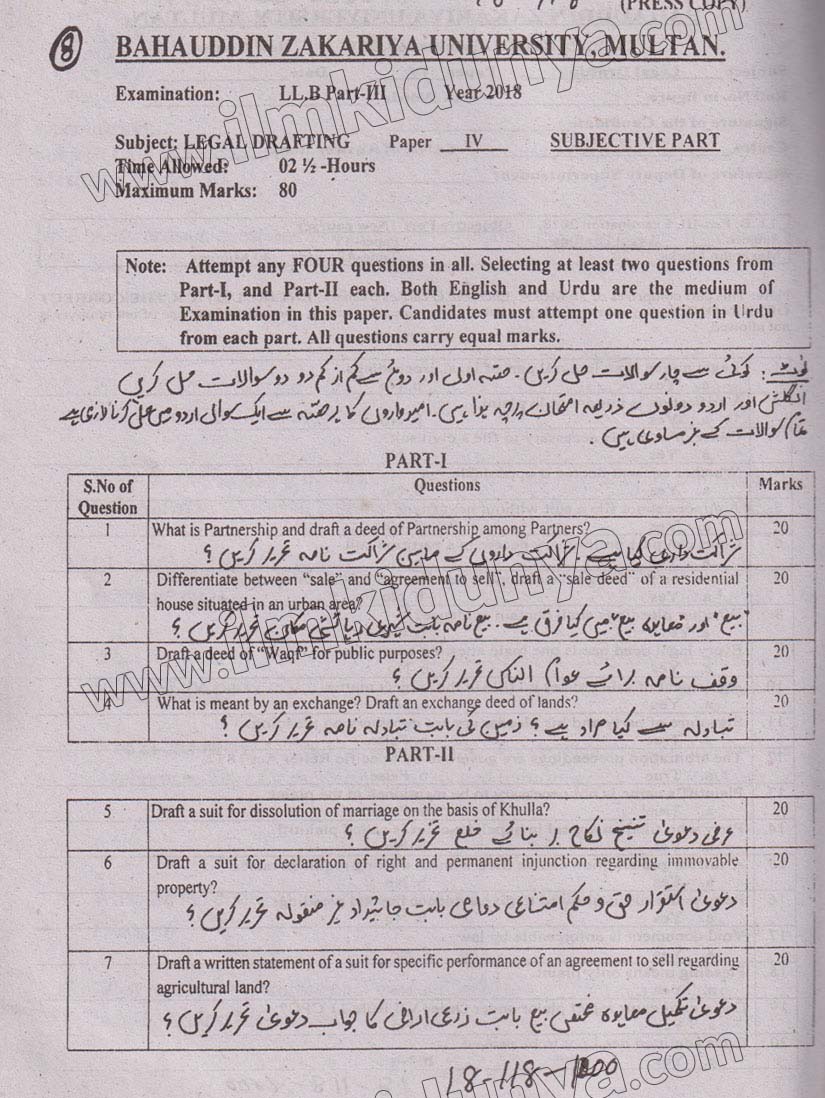 (PRESS COPY)
8
BAHAUDDIN ZAKARIYA UNIVERSITY, MULTAN.
Examination: LL.B Part-III Year 2018
Subject: LEGAL DRAFTING Paper IV SUBJECTIVE PART
Time Allowed: 02 ½ -Hours
Maximum Marks: 80
Note: Attempt any FOUR questions in all. Selecting at least two questions from
Part-I, and Part-II each. Both English and Urdu are the medium of
Examination in this paper. Candidates must attempt one question in Urdu
from each part. All questions carry equal marks.
نوٹ: کوئی سے چار سوالات حل کریں۔ حصہ اول اور دوئم سے کم از کم دو دو سوالات حل کریں
انگلش اور اردو دونوں ذریعہ امتحان پرچہ ہذا ہیں۔ امیدواروں کا ہر حصہ سے ایک سوال اردو میں حل کرنا لازمی ہے
تمام سوالات کے نمبر مساوی ہیں۔
PART-I
S.No of Question Questions Marks
1 What is Partnership and draft a deed of Partnership among Partners? 20
شراکت داری کیا ہے۔ شراکت داروں کے مابین شراکت نامہ تحریر کریں؟
2 Differentiate between “sale” and “agreement to sell”, draft a “sale deed” of a residential 20
house situated in an urban area?
"بیع" اور "معاہدہ بیع" میں کیا فرق ہے۔ بیع نامہ بابت شہری رہائشی مکان تحریر کریں؟
3 Draft a deed of “Waqf” for public purposes? 20
وقف نامہ برائے عوام الناس تحریر کریں؟
4 What is meant by an exchange? Draft an exchange deed of lands? 20
تبادلہ سے کیا مراد ہے؟ زمین کی بابت تبادلہ نامہ تحریر کریں؟
PART-II
5 Draft a suit for dissolution of marriage on the basis of Khulla? 20
عرضی دعویٰ تنسیخ نکاح بر بنائے خلع تحریر کریں؟
6 Draft a suit for declaration of right and permanent injunction regarding immovable 20
property?
دعویٰ استقرار حق و حکم امتناعی دوامی بابت جائیداد غیر منقولہ تحریر کریں؟
7 Draft a written statement of a suit for specific performance of an agreement to sell regarding 20
agricultural land?
دعویٰ تکمیل معاہدہ مختص بیع بابت زرعی اراضی کا جواب دعویٰ تحریر کریں؟
18-118-1200
www.ilmkidunya.com
www.ilmkidunya.com
www.ilmkidunya.com